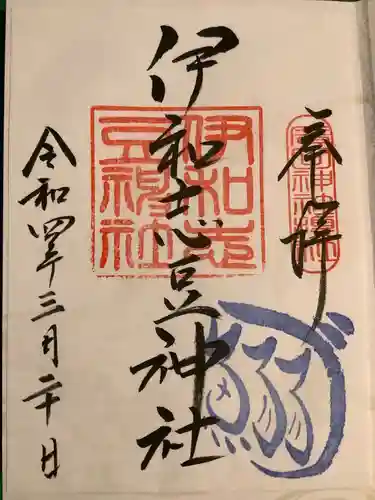 奉拝
伊和志豆神社
令和四年三月二十日
伊和志
豆神社
鰯